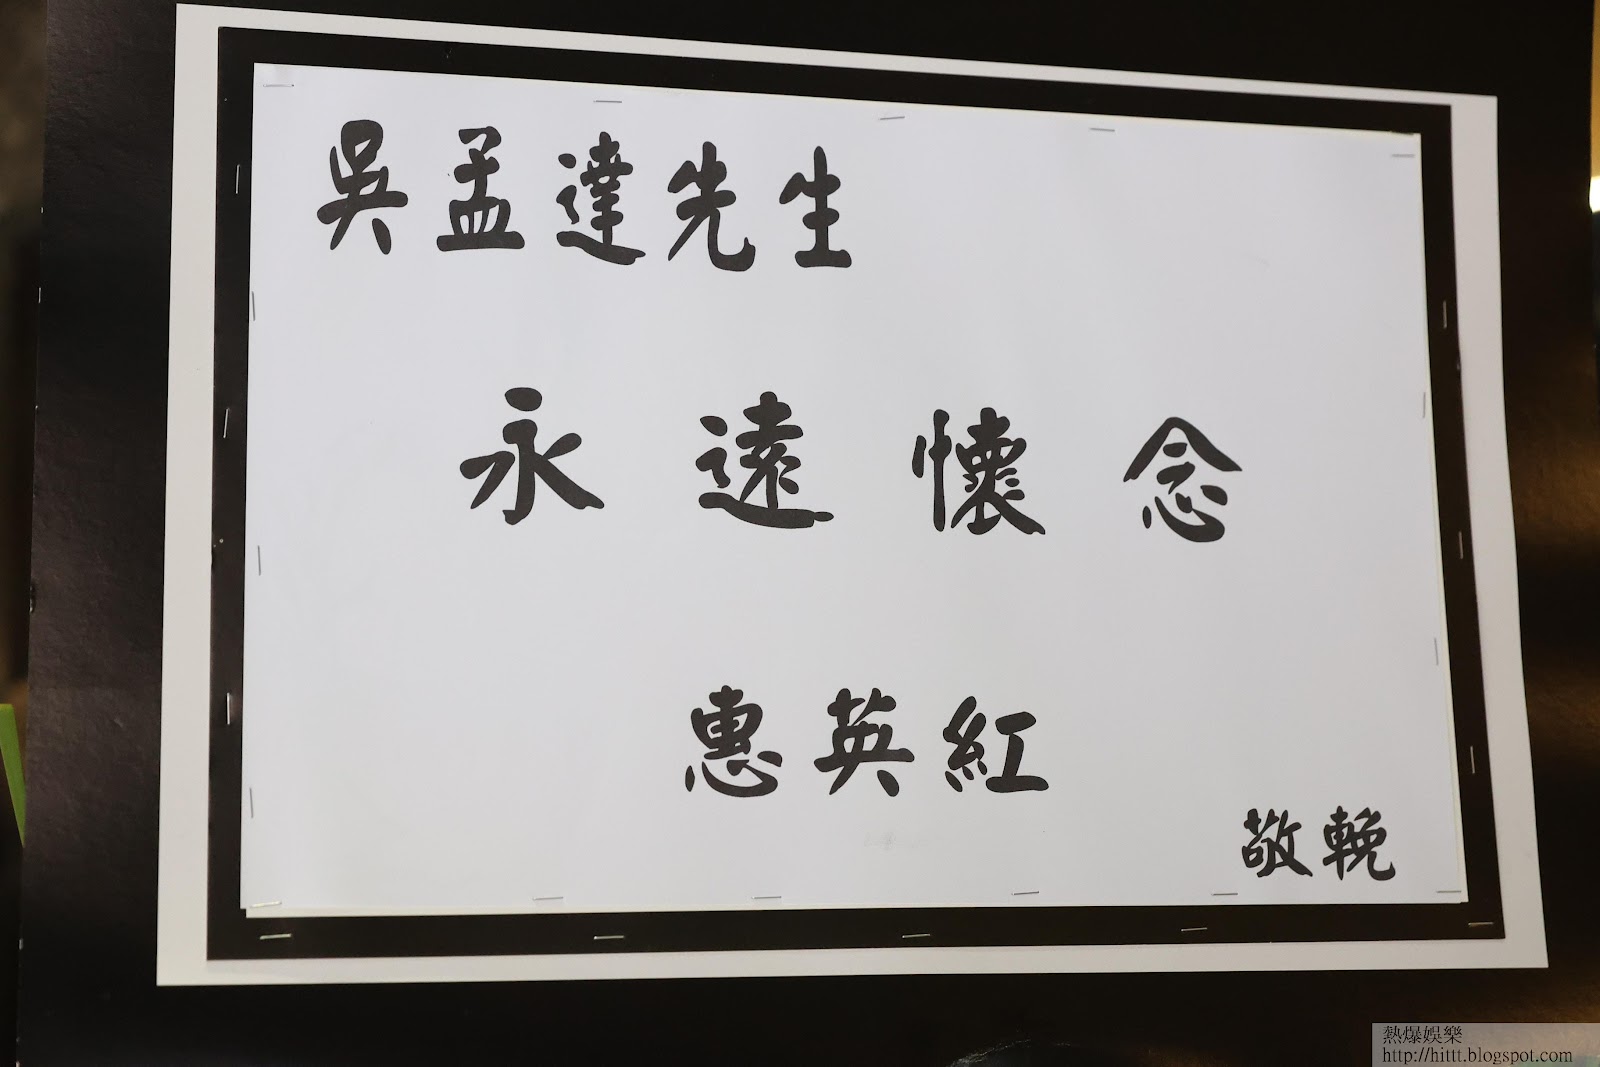 吳孟達先生
永遠懷念
惠英紅
敬輓
熱爆娛樂
http://hittt.blogspot.com